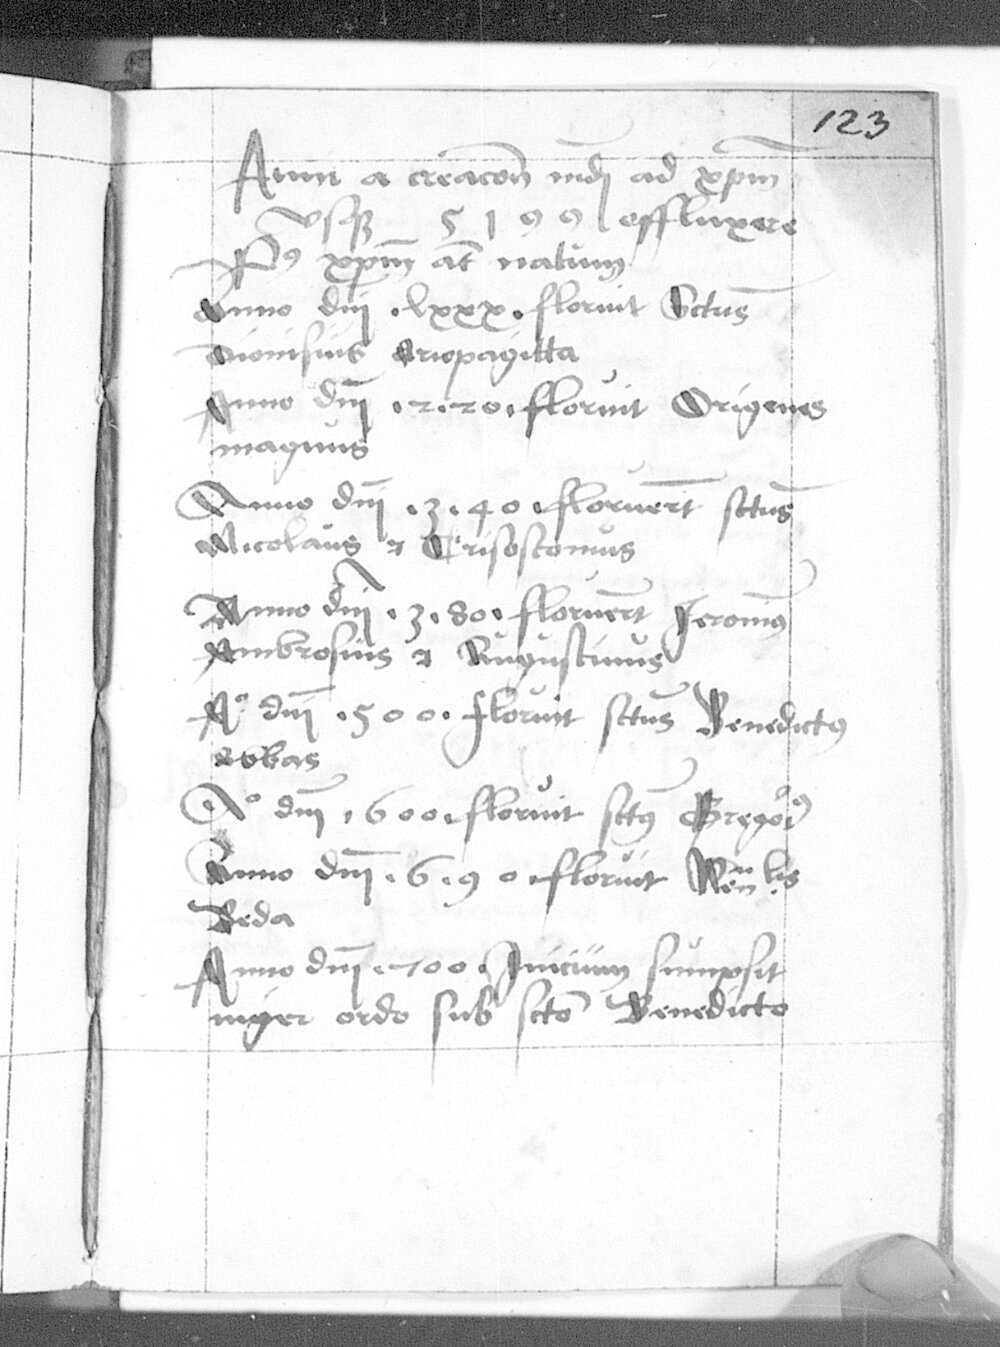 123
Anni a creacōn mūdi ad xp̄m
vsqꝫ 5199 effluxere
Pꝰ xp̄m āt natum
Anno dn̄i .lxxx. floruit Sctūs
Dionisius Ariopagitta
Anno dn̄i .2.20. floruit Origenes
magnus
Anno dn̄i .3.40. floruer̄t sctūs
Nicolaus ⁊ Crisostomus
Anno dn̄i .3.80. floruer̄t Jeronim9
Ambrosius ⁊ Augustinus
Aº dn̄i .500. floruit sctus Benedictꝰ
abbas
Aº dn̄i .600. floruit sctꝰ Gregorꝰ
Anno dn̄i .6.90. floruit Wen̄lis
Beda
Anno dn̄i .700. Inicium sumpsit
niger ordo sub scto Benedicto